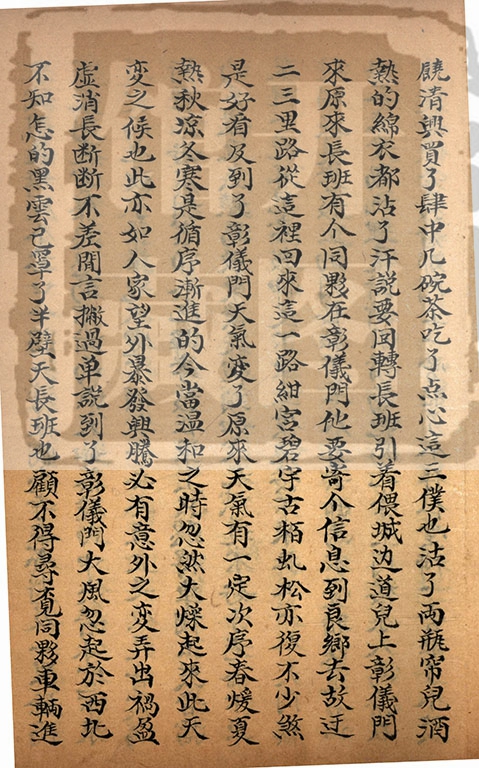 饒清興買了肆中几碗茶吃了点心這三僕也沽了両瓶帘兒酒
熱的綿衣都沾了汗説要囬轉長班引着偎城边道兒上彰儀門
來原來長班有个同夥在彰儀門他要寄个信息到良鄉去故迂
二三里路從這裡囬來這一路紺宮碧宇古栢虬松亦復不少煞
是好看及到了彰儀門天氣變了原來天氣有一定次序春煖夏
熱秋凉冬寒是循序漸進的今當温和之時忽然大燥起來此天
変之候也此亦如人家望外暴發興騰必有意外之変弄出禍盈
虚消長断断不差閒言撇過单説到了彰儀門大風忽起於西北
不知怎的黒雲已罩了半壁天長班也顧不得尋覔同夥車輛進